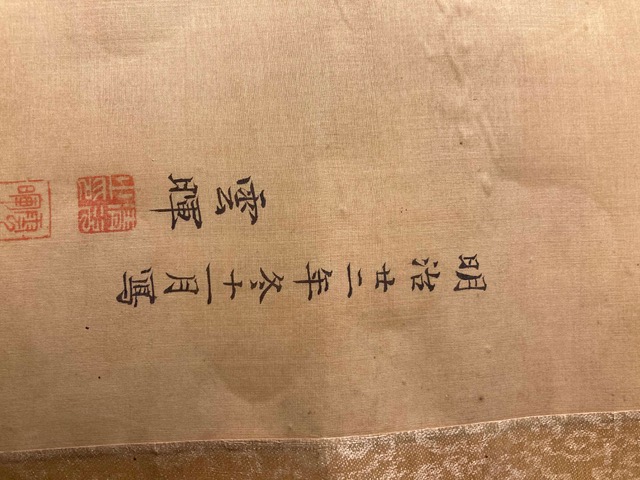 明治廿二年冬十一月寫
雲暉